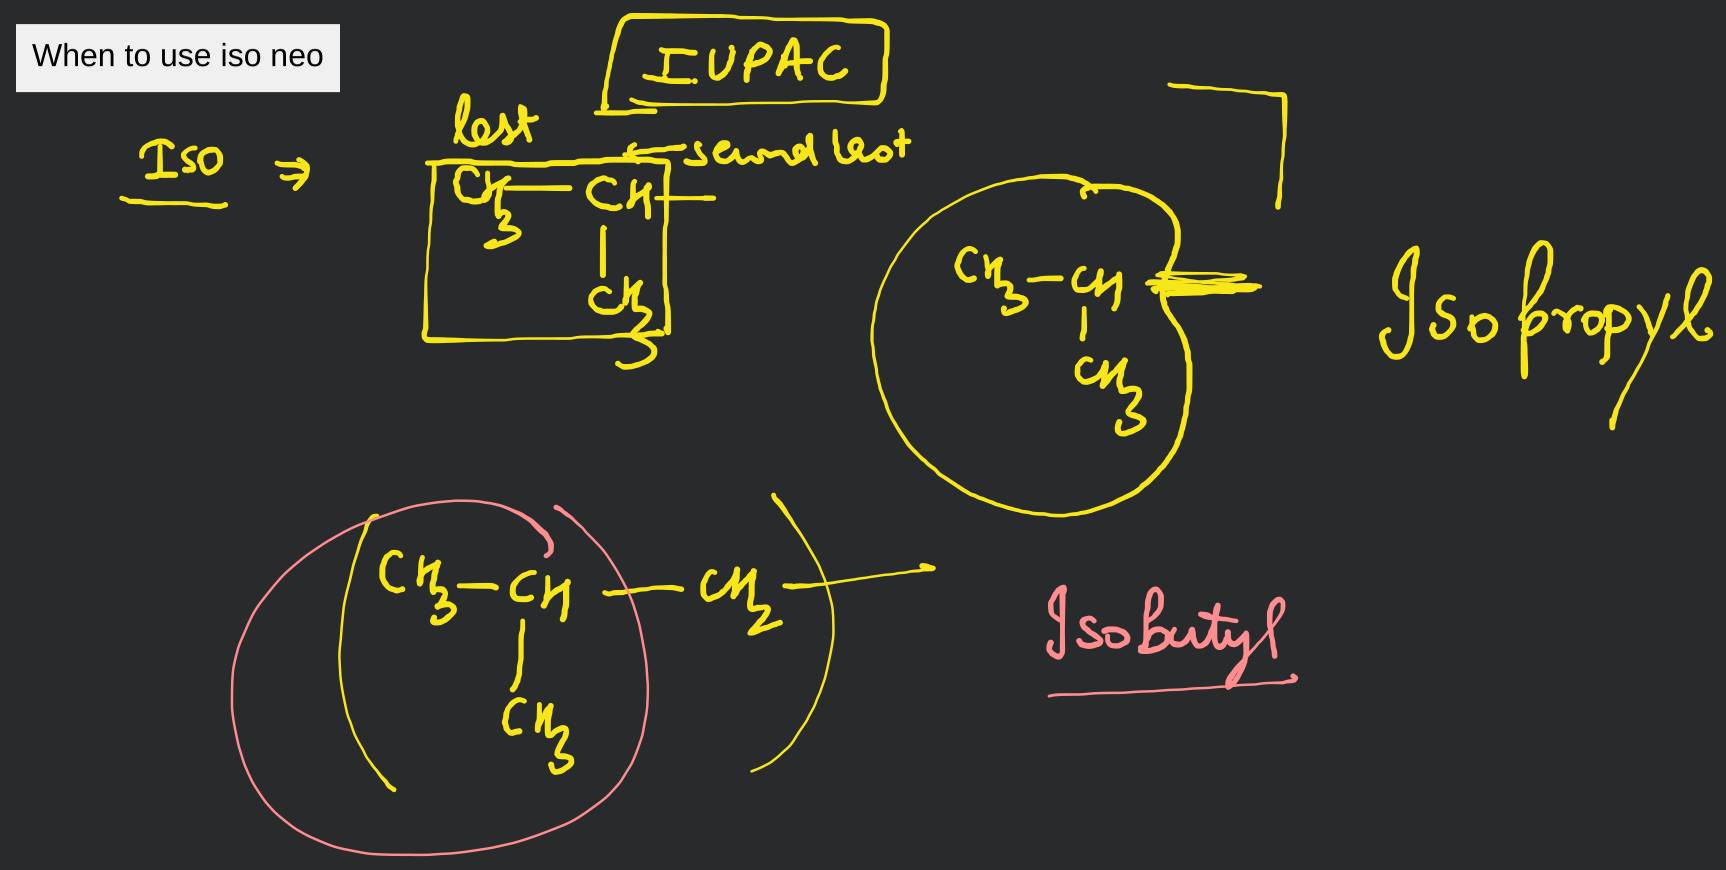 When to use iso neo
IUPAC
Iso ⇒
last
second last
CH3 — CH —
|
CH3
CH3 — CH
|
CH3
Isopropyl
CH3 — CH — CH2 —
|
CH3
Isobutyl